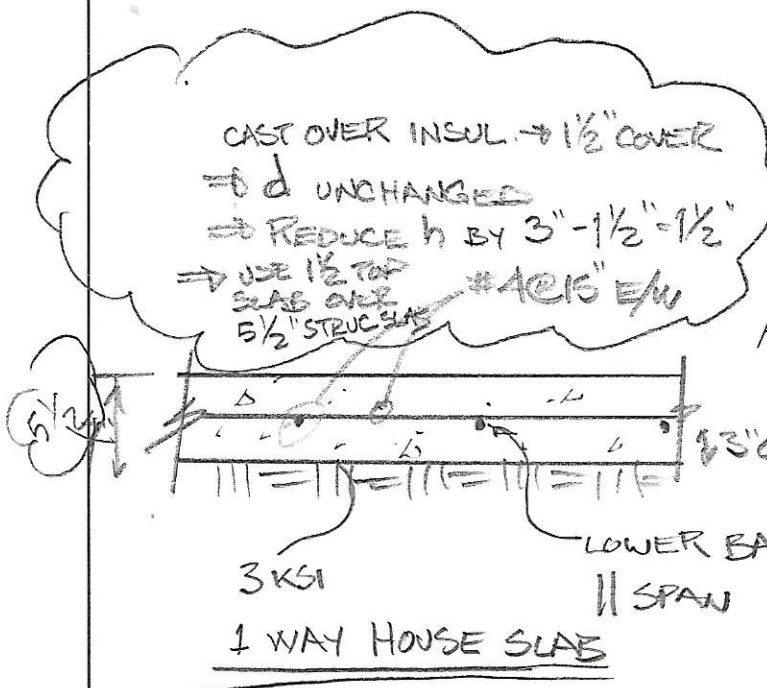 CAST OVER INSUL. → 1½" COVER
⇒ d UNCHANGED
⇒ REDUCE h BY 3"-1½"=1½"
⇒ USE 1½ TOP
SLAB OVER
5½" STRUC SLAB
#4@15" E/W
5½"
3"
LOWER BA
3 KSI
|| SPAN
1 WAY HOUSE SLAB